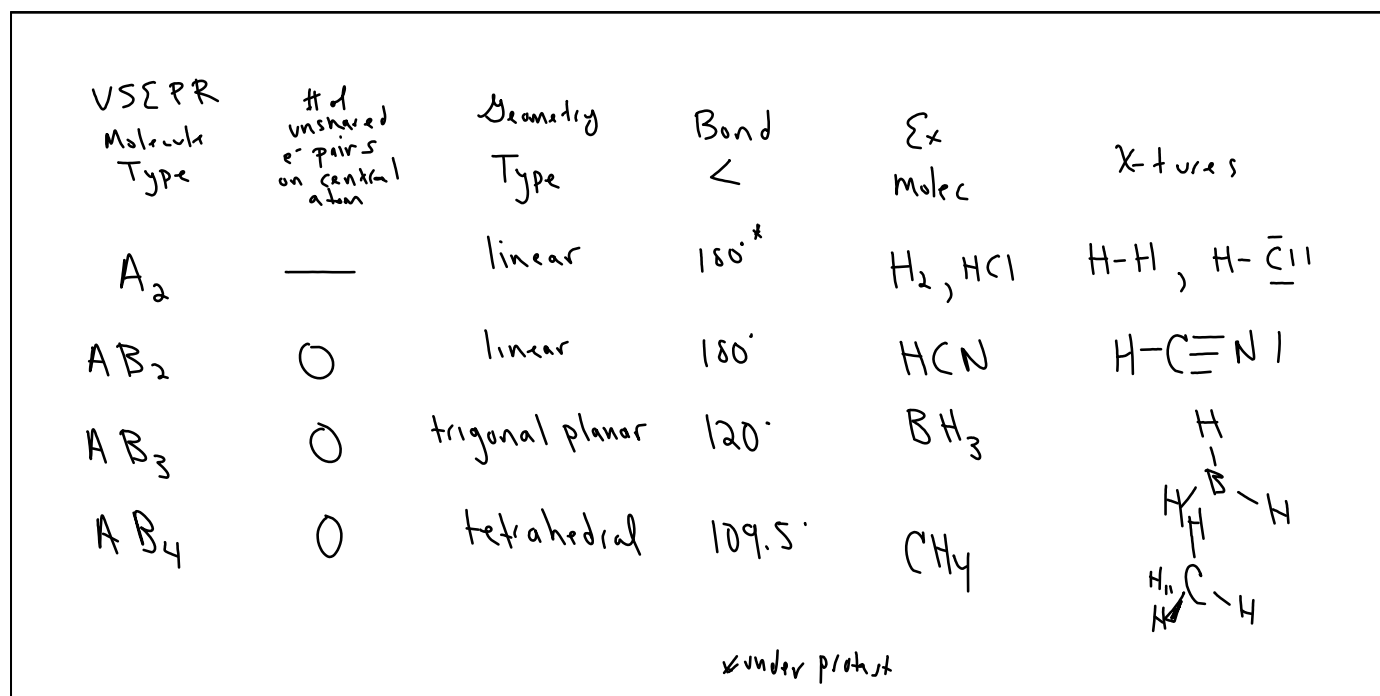 VSEPR Molecule Type
# of unshared e⁻ pairs on central atom
Geometry Type
Bond <
Ex molec
X-tures
A₂ — linear 180°* H₂, HCl H-H, H-Cl
AB₂ 0 linear 180° HCN H-C≡N|
AB₃ 0 trigonal planar 120° BH₃ H B H H
AB₄ 0 tetrahedral 109.5° CH₄ H C H H H
*under protest